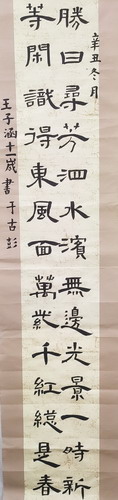 辛丑冬月
勝日尋芳泗水濱無邊光景一時新
等閑識得東風面萬紫千紅總是春
王子涵十一歲書于古彭